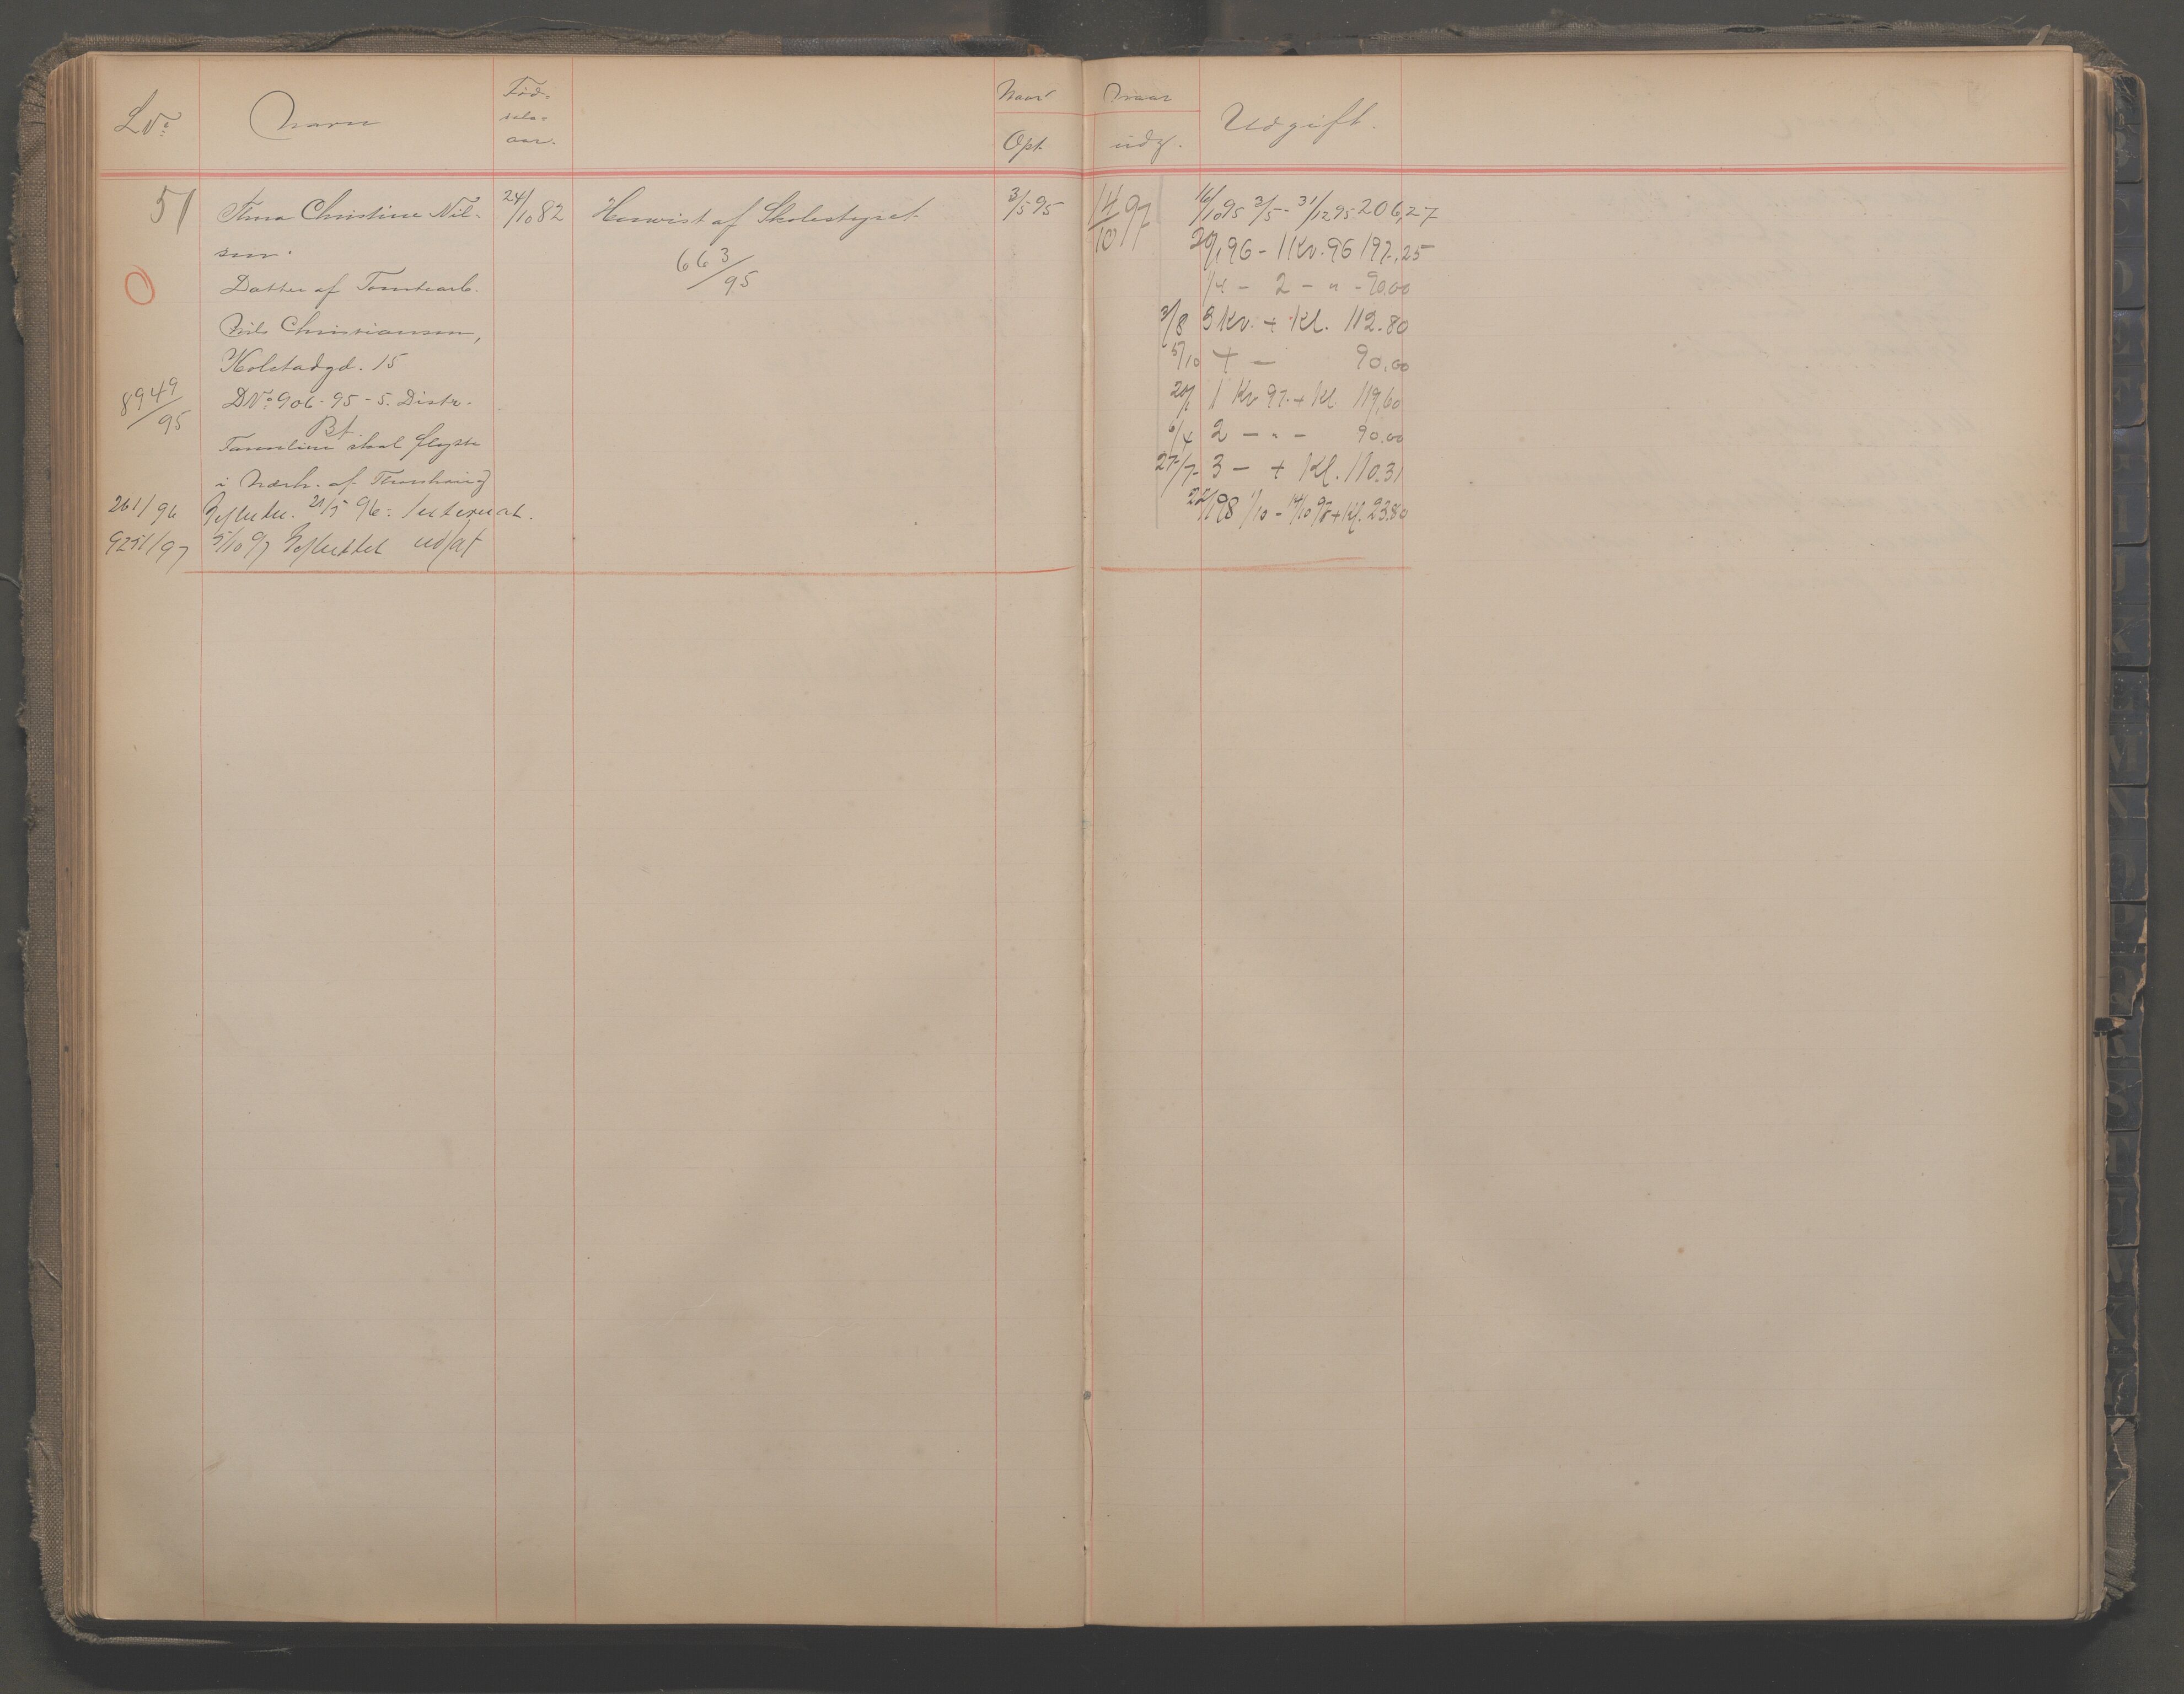 LNo:
Navn
Fød-
sels-
aar.
Naar
Opt.
Naar
udg.
Udgift.
51
Anna Christine Nil-
sen.
24/10 82
Henvist af Skolestyret
663/95
3/5 95
14/10 97
O
Datter af Tomtearb.
Nils Christiansen,
Kolstadgd. 15
8949/95
DNo: 906-95-5. Distr.
Bt.
Familien skal flyttes
i Nærh. af
261/96 21/5 96 - Internat.
9251/97 5/10 97 udsat
16/10 95 3/5 - 31/12 95 206,27
20/1 96 - 1 Kv. 96 197,25
1/4 - 2 - " - 90.00
3/8 3 Kv. + Kl. 112.80
5/10 4 - 90.00
20/1 1 Kv 97 + Kl. 119,60
6/4 2 - " - 90.00
27/7 3 - + Kl. 110.31
22/1 98 1/10 - 14/10 98 + Kl. 23.80